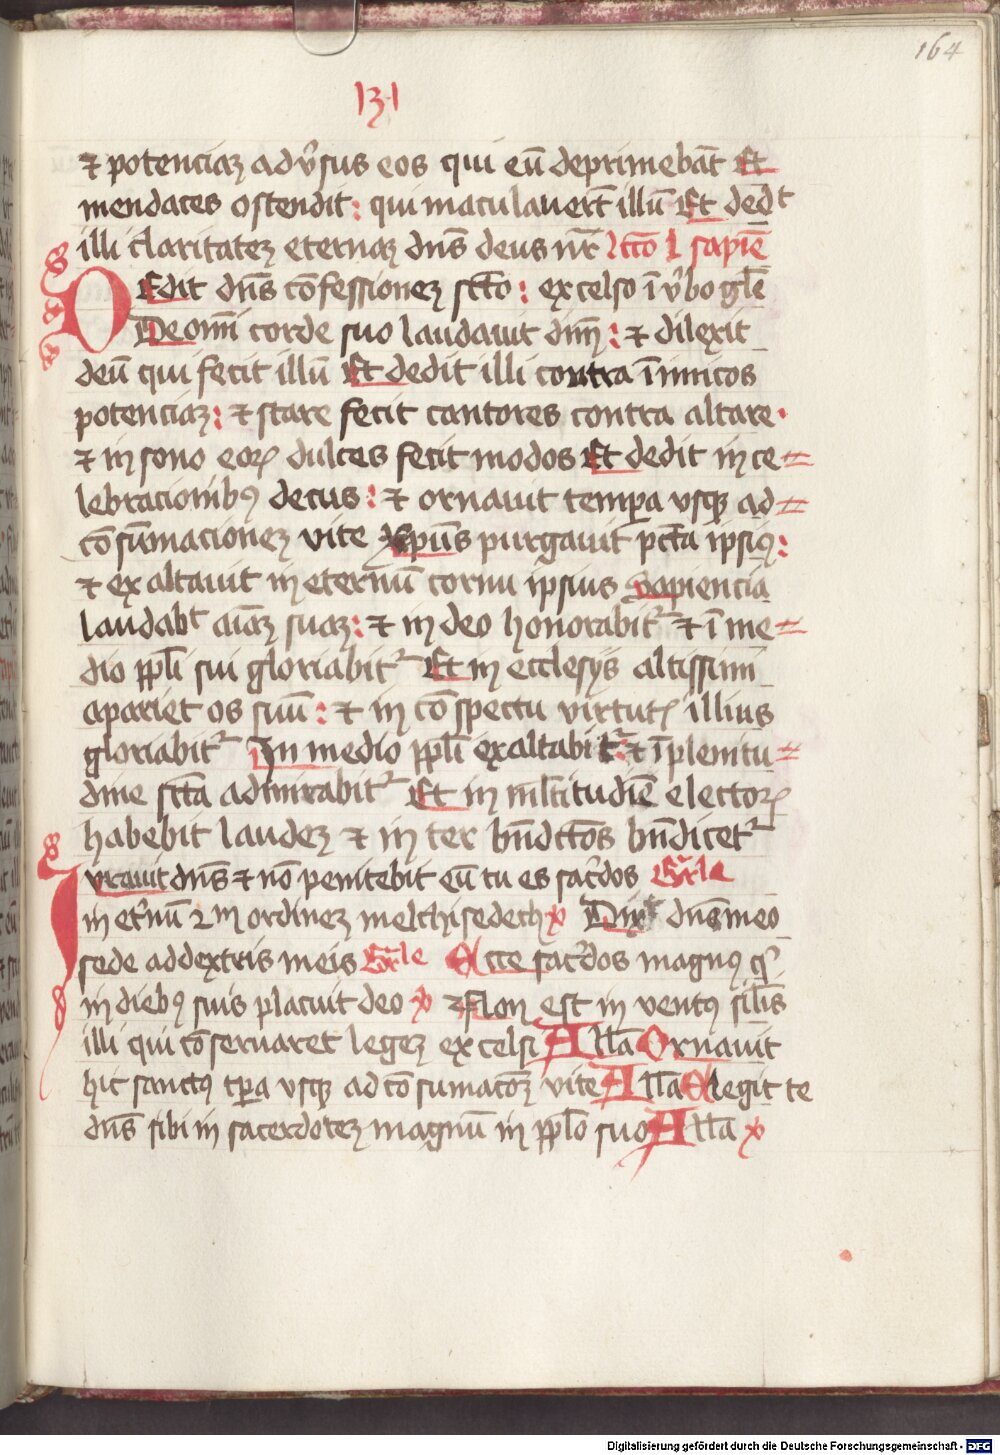 164
131
⁊ potenciaʒ adv̓sus eos qui eū deprimebāt Et
mendaces ostendit : qui maculauer̄t illū Et dedᵗ
illi claritateʒ eternaʒ dn̄s deus nr̄ lcc̄o l sapiē
Dedit dn̄s cōfessioneʒ sc̄to : excelso ī v̓bo gl̄e
De om̄i corde suo laudauit dn̄m : ⁊ dilexit
deū qui fecit illū Et dedit illi contra īimicos
potenciaʒ : ⁊ stare fecit cantores contra altare ·
⁊ in sono eoꝝ dulces fecit modos Et dedit in ce=
lebracionibꝰ decus : ⁊ ornauit tempa vsqꝫ ad=
cōsūmacioneʒ vite xpūs purgauit pc̄ta ipsiꝰ :
⁊ exaltauit in eternū cornu ipsius Sapiencia
laudabᵗ aīaʒ suaʒ : ⁊ in deo honorabit᷑ ⁊ ī me=
dio ppl̄i sui gloriabit᷑ Et in ecclesijs altissimi
apariet os suū : ⁊ in cōspectu virtutꝭ illius
gloriabit᷑ In medio ppl̄i exaltabit᷑ : ⁊ ī plenitu=
dine sc̄ta admirabit᷑ Et in ml̄titudīe electoꝝ
habebit laudeʒ ⁊ in ter bn̄dc̄tos bn̄dicet᷑
Iurauit dn̄s ⁊ nō penitebit eū tu es sac̓dos Gr̄le
in et̓nū ẜm ordineʒ melchisedech ꝟ Dixit dn̄s meo
sede addextris meis Gr̄le Ecce sac̓dos magnꝰ q̓
in diebꝰ suis placuit deo ꝟ Non est in ventꝰ sil̄is
illi qui cōseruaret legeʒ excelsi All̄a Ornauit
hic sanctꝰ tp̄a vsqꝫ ad cōsumacōeʒ vite All̄a Elegit te
dn̄s sibi in sacerdoteʒ magnū in ppl̄o suo All̄a ꝟ
Digitalisierung gefördert durch die Deutsche Forschungsgemeinschaft - DFG